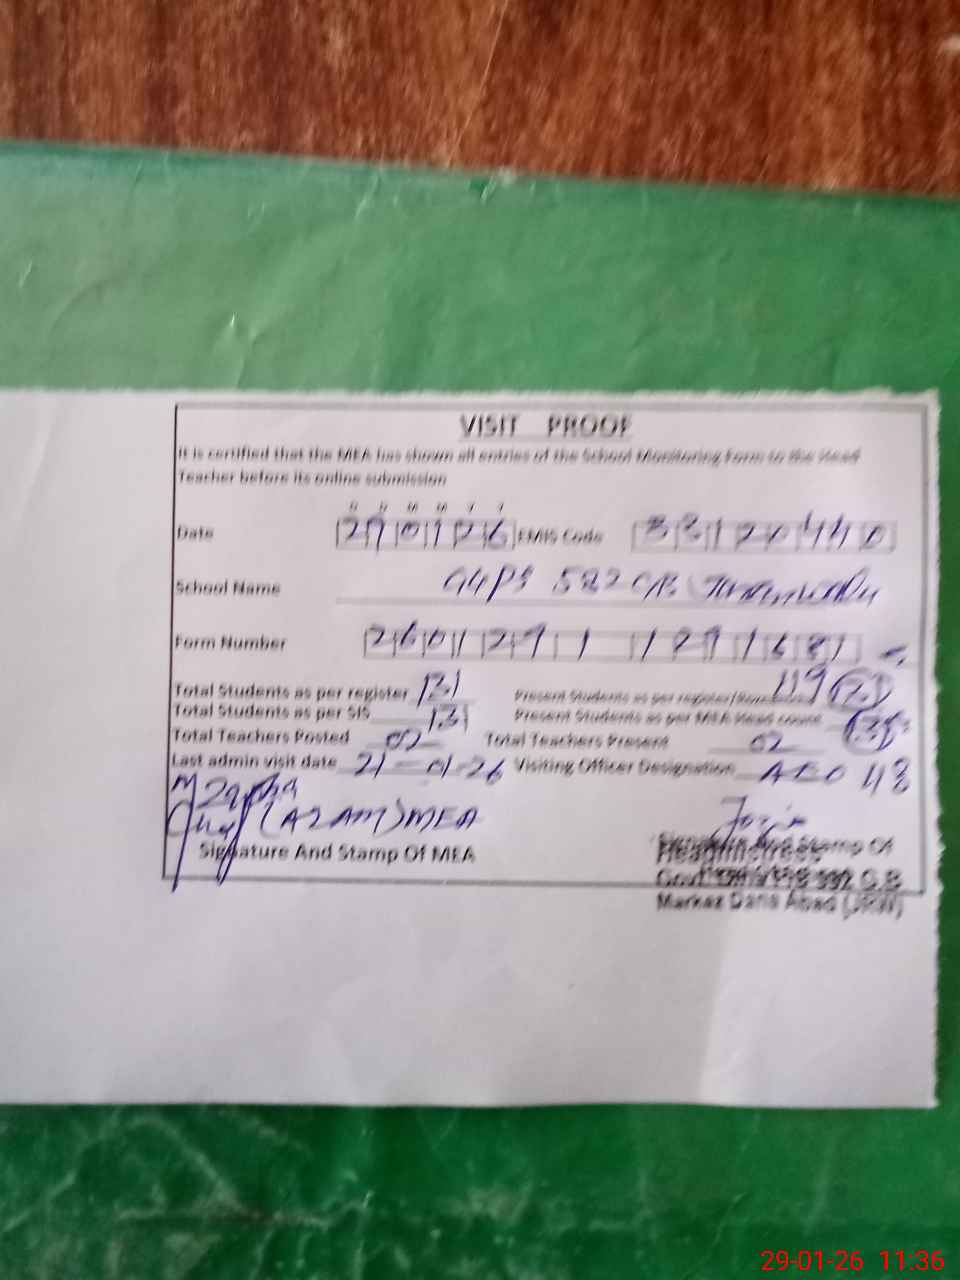 VISIT PROOF
It is certified that the MEA has shown all entries of the School Monitoring Form to the Head
Teacher before its online submission
D D M M Y Y
Date 290126 EMIS Code 33120440
School Name GGPS 582 GB
Form Number
Total Students as per register 131 Present Students as per register/ 119
Total Students as per SIS 131 Present Students as per MEA Head count
Total Teachers Posted 02 Total Teachers Present 02
Last admin visit date 21-01-26 Visiting Officer Designation AEO 48
(AZAM) MEA
Signature And Stamp Of MEA Signature And Stamp Of
Headmistress
Govt. G.B
Markaz Dana Abad (JRW)
29-01-26 11:36